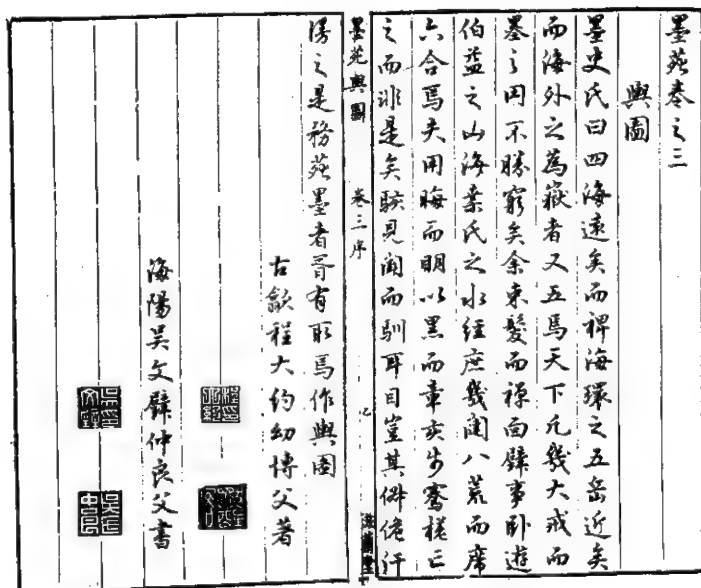 墨苑卷之三
輿圖
墨史氏曰四海遠矣而裨海環之五岳近矣
而海外之為嶽者又五焉天下凡幾大戒而
墨之用不勝窮矣余束髮而禪面壁事卧遊
伯益之山海桒氏之水經庶幾闚八荒而席
六合焉夫用晦而明以黑而章亥步騫槎亡
之而非是矣駭見聞而馴耳目豈其僻佹汗
墨苑輿圖
卷三序
乙
滋蘭堂
漫之是務苑墨者胥有取焉作輿圖
古歙程大約幼博父著
海陽吳文擘仲良父書